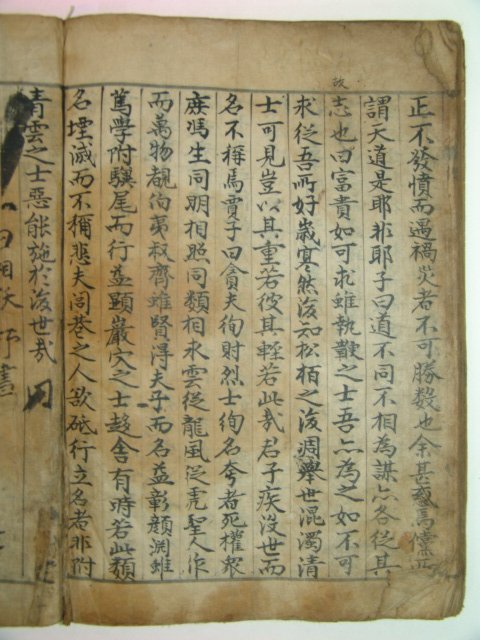 正不發憤而遇禍災者不可勝數也余甚惑焉儻所
謂天道是耶非耶子曰道不同不相為謀亦各從其
志也曰富貴如可求雖執鞭之士吾亦為之如不可
故
求從吾所好歲寒然後知松柏之後凋舉世混濁清
士可見豈以其重若彼其輕若此哉君子疾沒世而
名不稱焉賈子曰貪夫徇財烈士徇名夸者死權衆
庶馮生同明相照同類相求雲從龍風從虎聖人作
而萬物覩伯夷叔齊雖賢得夫子而名益彰顏淵雖
篤學附驥尾而行益顯巖穴之士趍舍有時若此類
名堙滅而不稱悲夫閭巷之人欲砥行立名者非附
青雲之士惡能施於後世哉